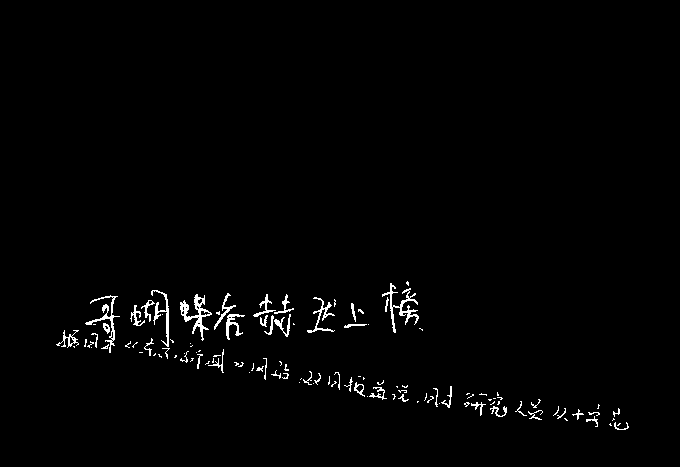 哥蝴蝶谷赫然上榜
据日本《东京新闻》网站22日报道说,日本研究人员从十字花